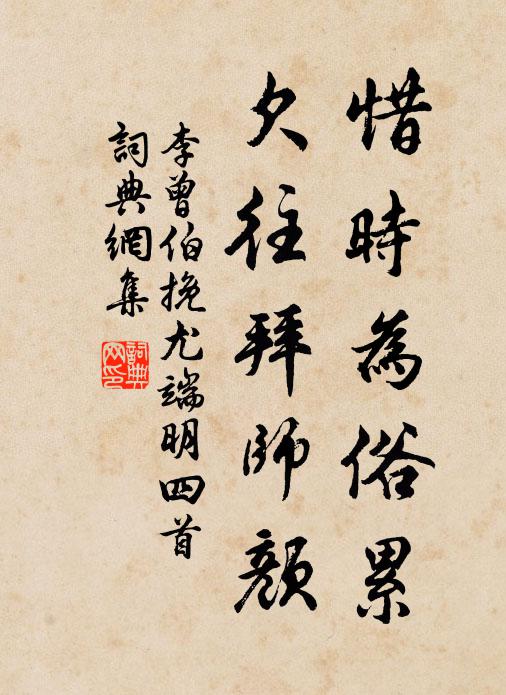 惜時為俗累
欠往拜師顏
李曾伯挽尤端明四首
詞典網集
詞典網印